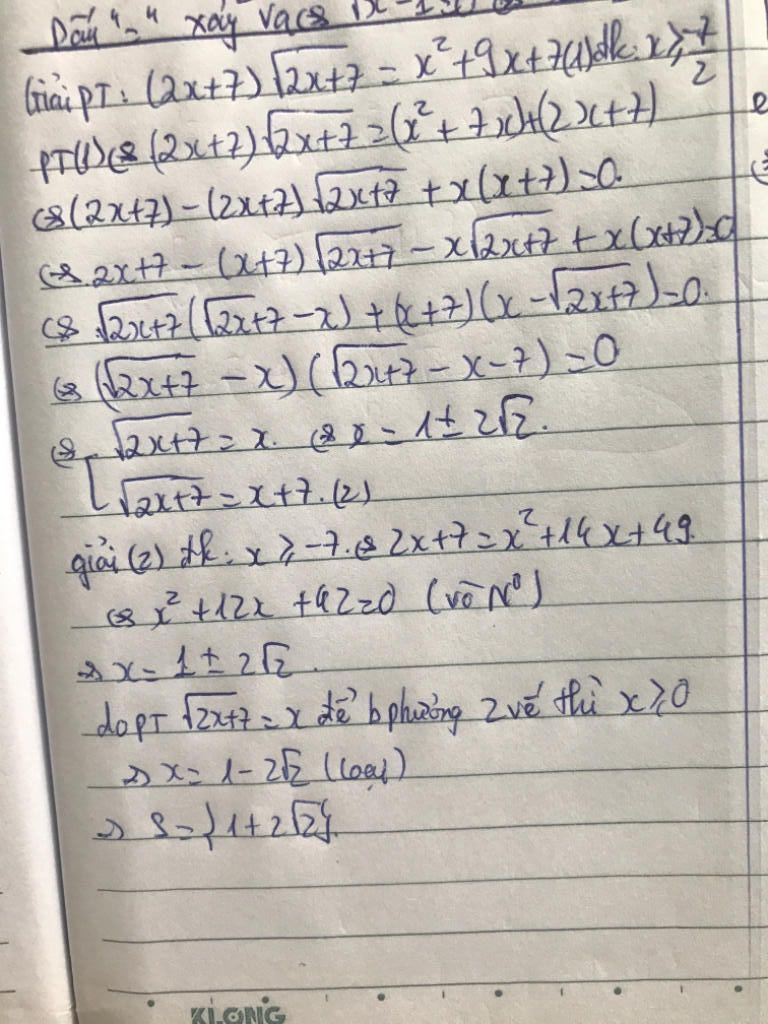 Dấu "=" xảy ra <=>
Giải PT: (2x+7)√(2x+7) = x²+9x+7 (1) đk: x ≥ -7/2
PT(1) <=> (2x+7)√(2x+7) = (x²+7x)+(2x+7)
<=> (2x+7) - (2x+7)√(2x+7) + x(x+7) = 0.
<=> 2x+7 - (x+7)√(2x+7) - x√(2x+7) + x(x+7) = 0
<=> √(2x+7)(√(2x+7) - x) + (x+7)(x - √(2x+7)) = 0.
<=> (√(2x+7) - x)(√(2x+7) - x - 7) = 0
<=> [ √(2x+7) = x. <=> x = 1 ± 2√2.
√(2x+7) = x+7. (2)
giải (2) đk: x ≥ -7. <=> 2x+7 = x²+14x+49.
<=> x²+12x+42=0 (vô N⁰)
=> x = 1 ± 2√2.
do PT √(2x+7) = x để b phường 2 vế thì x ≥ 0
=> x = 1 - 2√2 (loại)
=> S = {1+2√2}.
KLONG